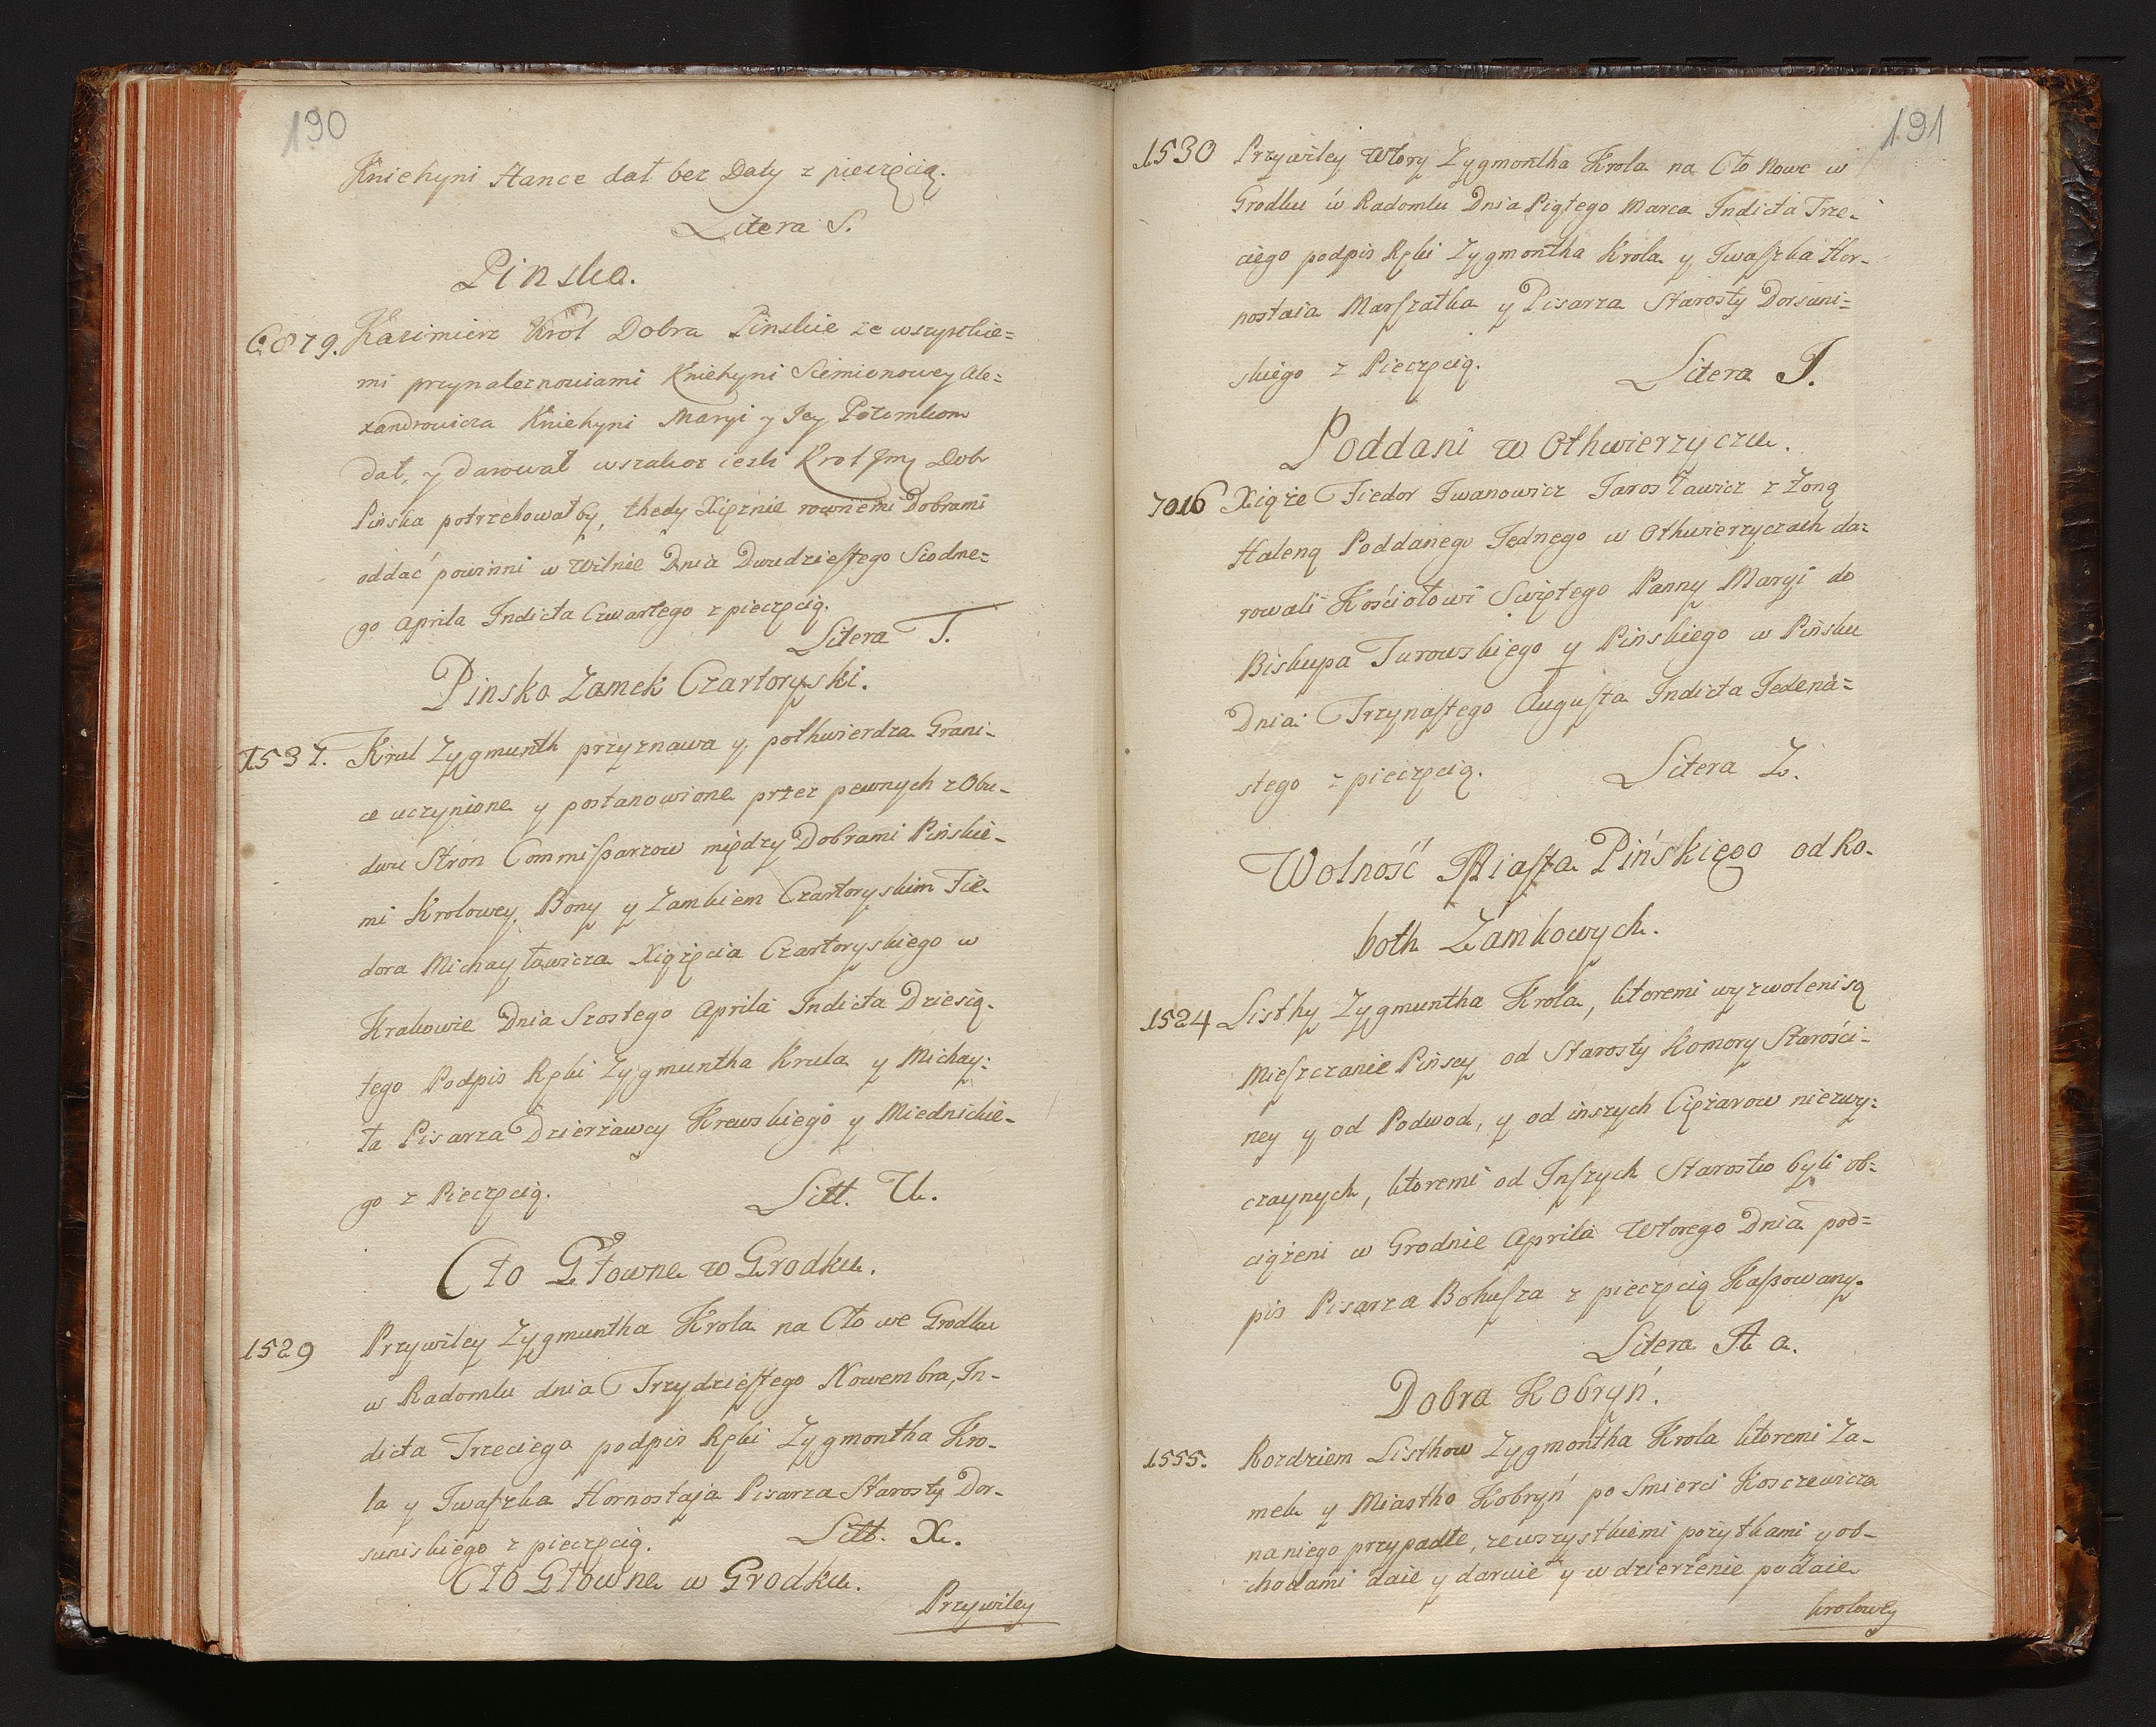 190
Kniehyni Stance dał bez Daty z pieczęcią.
Litera S.
Pinska.
6879. Kazimierz Krol Dobra Pinskie ze wszystkie=
mi przynaleznosciami Kniehyni Siemionowey Ale=
xandrowicza Kniehyni Maryi y Jey Potomkom
dał, y darował wszakoz iesli Krol Jmę Dob
Pińska potrzebowałby, thedy Xięznie rownemi Dobrami
oddać powinni w Wilnie Dnia Dwudziestego Siodme=
go Aprila Indicta Czwartego z pieczęcią.
Litera T.
Pinsko Zamek Czartoryski.
1537. Krul Zygmunth przyznawa y pothwierdza Grani-
ce uczynione y postanowione przez pewnych z Obu-
dwu Stron Commissarzow między Dobrami Pińskie-
mi Krolowey Bony y Zamkiem Czartoryskim Fie-
dora Michayławicza Xiążęcia Czartoryskiego w
Krakowie Dnia Szostego Aprila Indicta Dziesią-
tego Podpis Ręki Zygmuntha Krula y Michay:
ła Pisarza Dzierżawcy Krewskiego y Miednickie-
go z Pieczęcią.
Litt. U.
Cło Głowne w Grodku.
1529 Przywiley Zygmuntha Krola na Cło we Grodku
w Radomlu dnia Trzydziestego Nowembra, In-
dicta Trzeciego podpis Ręki Zygmontha Kro-
la y Iwaszka Hornostaja Pisarza Starosty Dor-
suniskiego z pieczęcią.
Litt. X.
Cło Głowne w Grodku.
Przywiley
191
1530 Przywiley Wtory Zygmontha Krola na Cło Nowe w
Grodku w Radomlu Dnia Piątego Marca Indicta Trze-
ciego podpis Ręki Zygmontha Krola y Iwaszka Hor-
nostaia Marszałka y Pisarza Starosty Dorsuni=
skiego z Pieczęcią.
Litera J.
Poddani w Othwierzyczu.
7016 Xiąże Fiedor Iwanowicz Jarosławicz z Żoną
Haleną Poddanego Jednego w Othwierzyczach da=
rowali Kościołowi Swiętego Panny Maryi do
Biskupa Turowskiego y Pinskiego w Pińsku
Dnia Trzynastego Augusta Indicta Jedena=
stego z pieczęcią.
Litera Z.
Wolność Miasta Pińskiego od Ro-
both Zamkowych.
1524 Listhy Zygmuntha Krola, ktoremi wyzwoleni są
Mieszczanie Pinscy od Starosty Komory Starości-
ney y od Podwod, y od inszych Ciężarow niezwy:
czaynych, ktoremi od Inszych Starostw byli ob:
ciążeni w Grodnie Aprila Wtorego Dnia pod=
pis Pisarza Bohusza z pieczęcią Kassowany.
Litera A a.
Dobra Kobryń.
1555. Rozdziem Listhow Zygmontha Krola ktoremi Za-
mek y Miastho Kobryń po Smierci Kosczewicza
na niego przypadłe, ze wszystkiemi pożytkami y ob-
chodami daie y daruie y w dzierzenie podaie
krolowey